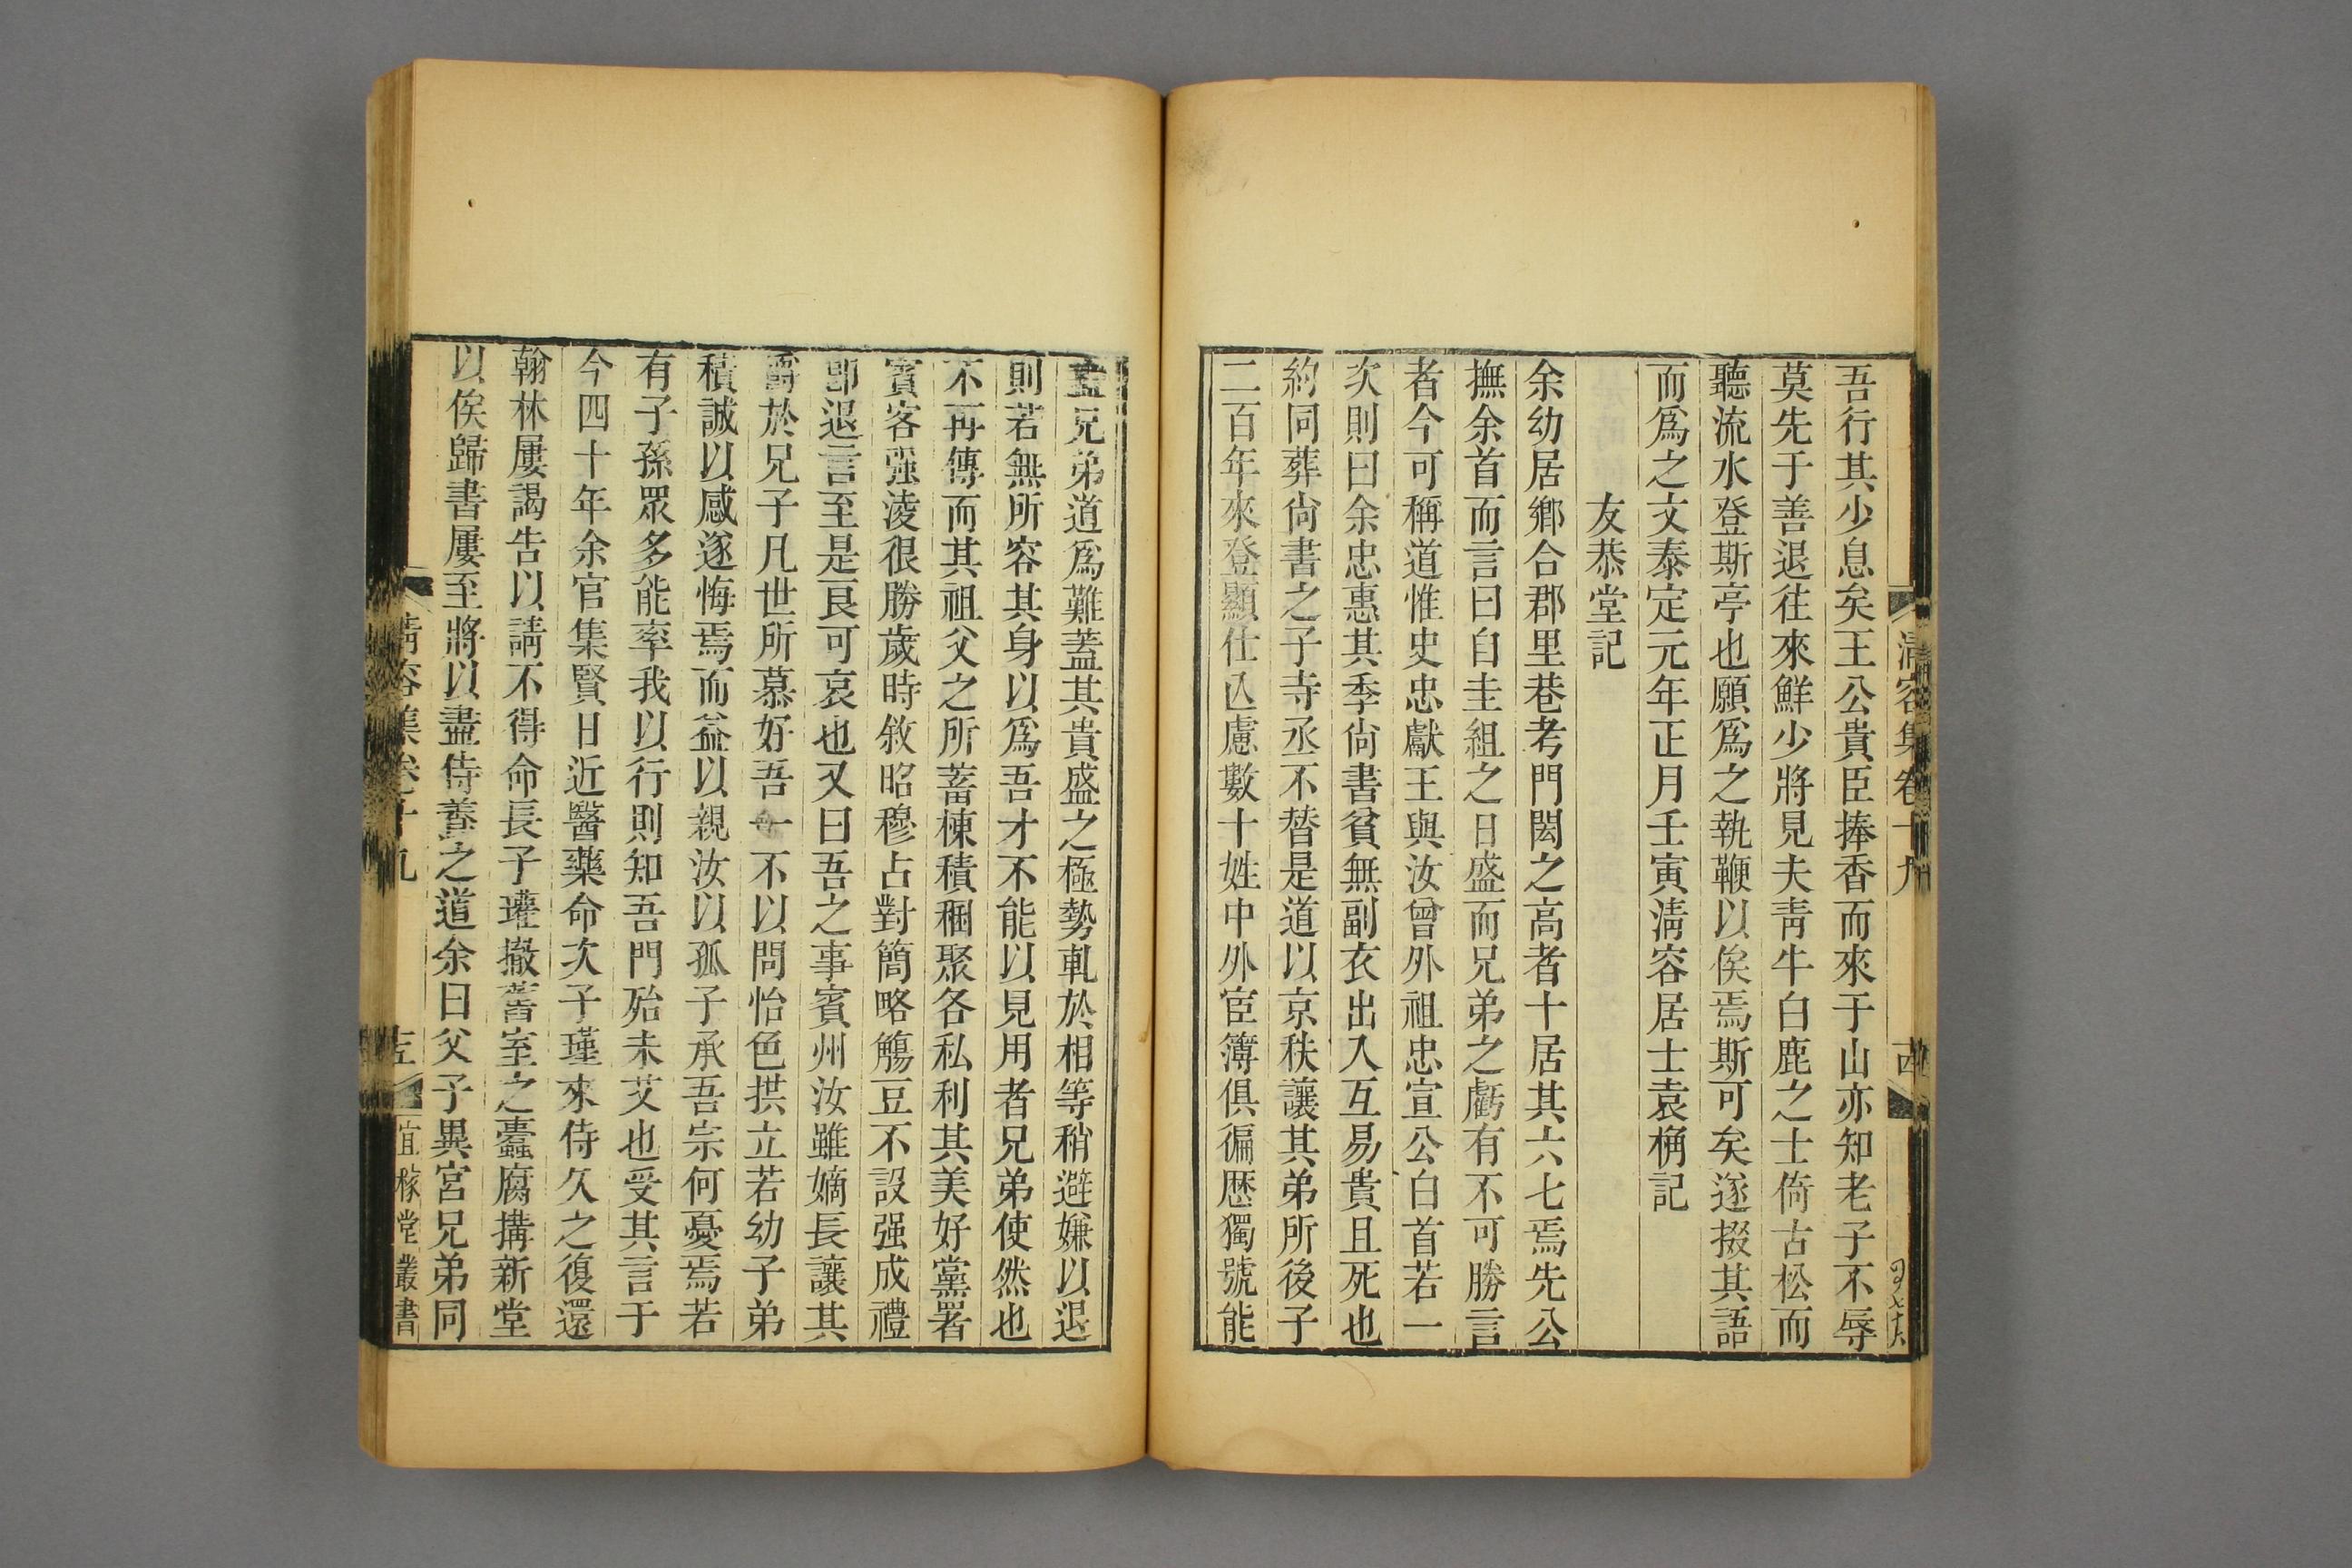 清容集卷十九
吾行其少息矣王公貴臣捧香而來于山亦知老子不辱
莫先于善退往來鮮少將見夫青牛白鹿之士倚古松而
聽流水登斯亭也願爲之執鞭以俟焉斯可矣遂掇其語
而爲之文泰定元年正月壬寅淸容居士袁桷記
友恭堂記
余幼居鄉合郡里巷考門閥之高者十居其六七焉先公
撫余首而言曰自圭組之日盛而兄弟之虧有不可勝言
者今可稱道惟史忠獻王與汝曾外祖忠宣公白首若一
次則曰余忠惠其季尙書貧無副衣出入互易貴且死也
約同葬尙書之子寺丞不替是道以京秩讓其弟所後子
二百年來登顯仕亾慮數十姓中外宦簿俱徧歷獨號能
盡兄弟道爲難蓋其貴盛之極勢軋於相等稍避嫌以退
則若無所容其身以爲吾才不能以見用者兄弟使然也
不再傳而其祖父之所蓄楝積稇聚各私利其美好黨署
賓客强凌很勝歲時敘昭穆占對簡略觴豆不設强成禮
卽退言至是良可哀也又曰吾之事賓州汝雖嫡長讓其
爵於兄子凡世所慕好吾一不以問怡色拱立若幼子弟
積誠以感遂悔焉而益以親汝以孤子承吾宗何憂焉若
有子孫眾多能率我以行則知吾門殆未艾也受其言于
今四十年余官集賢日近醫藥命次子瑾來侍久之復還
翰林屢謁告以請不得命長子瓘撤舊室之蠹腐搆新堂
以俟歸書屢至將以盡侍養之道余曰父子異宮兄弟同
淸容集卷十九
宜稼堂叢書